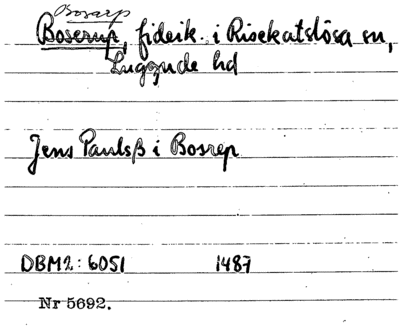 Bosarp
Boserup, fideik. i Risekatslösa sn,
Luggude hd
Jens Paulsß i Bosrep
DBM2: 6051 1487
Nr 5692.